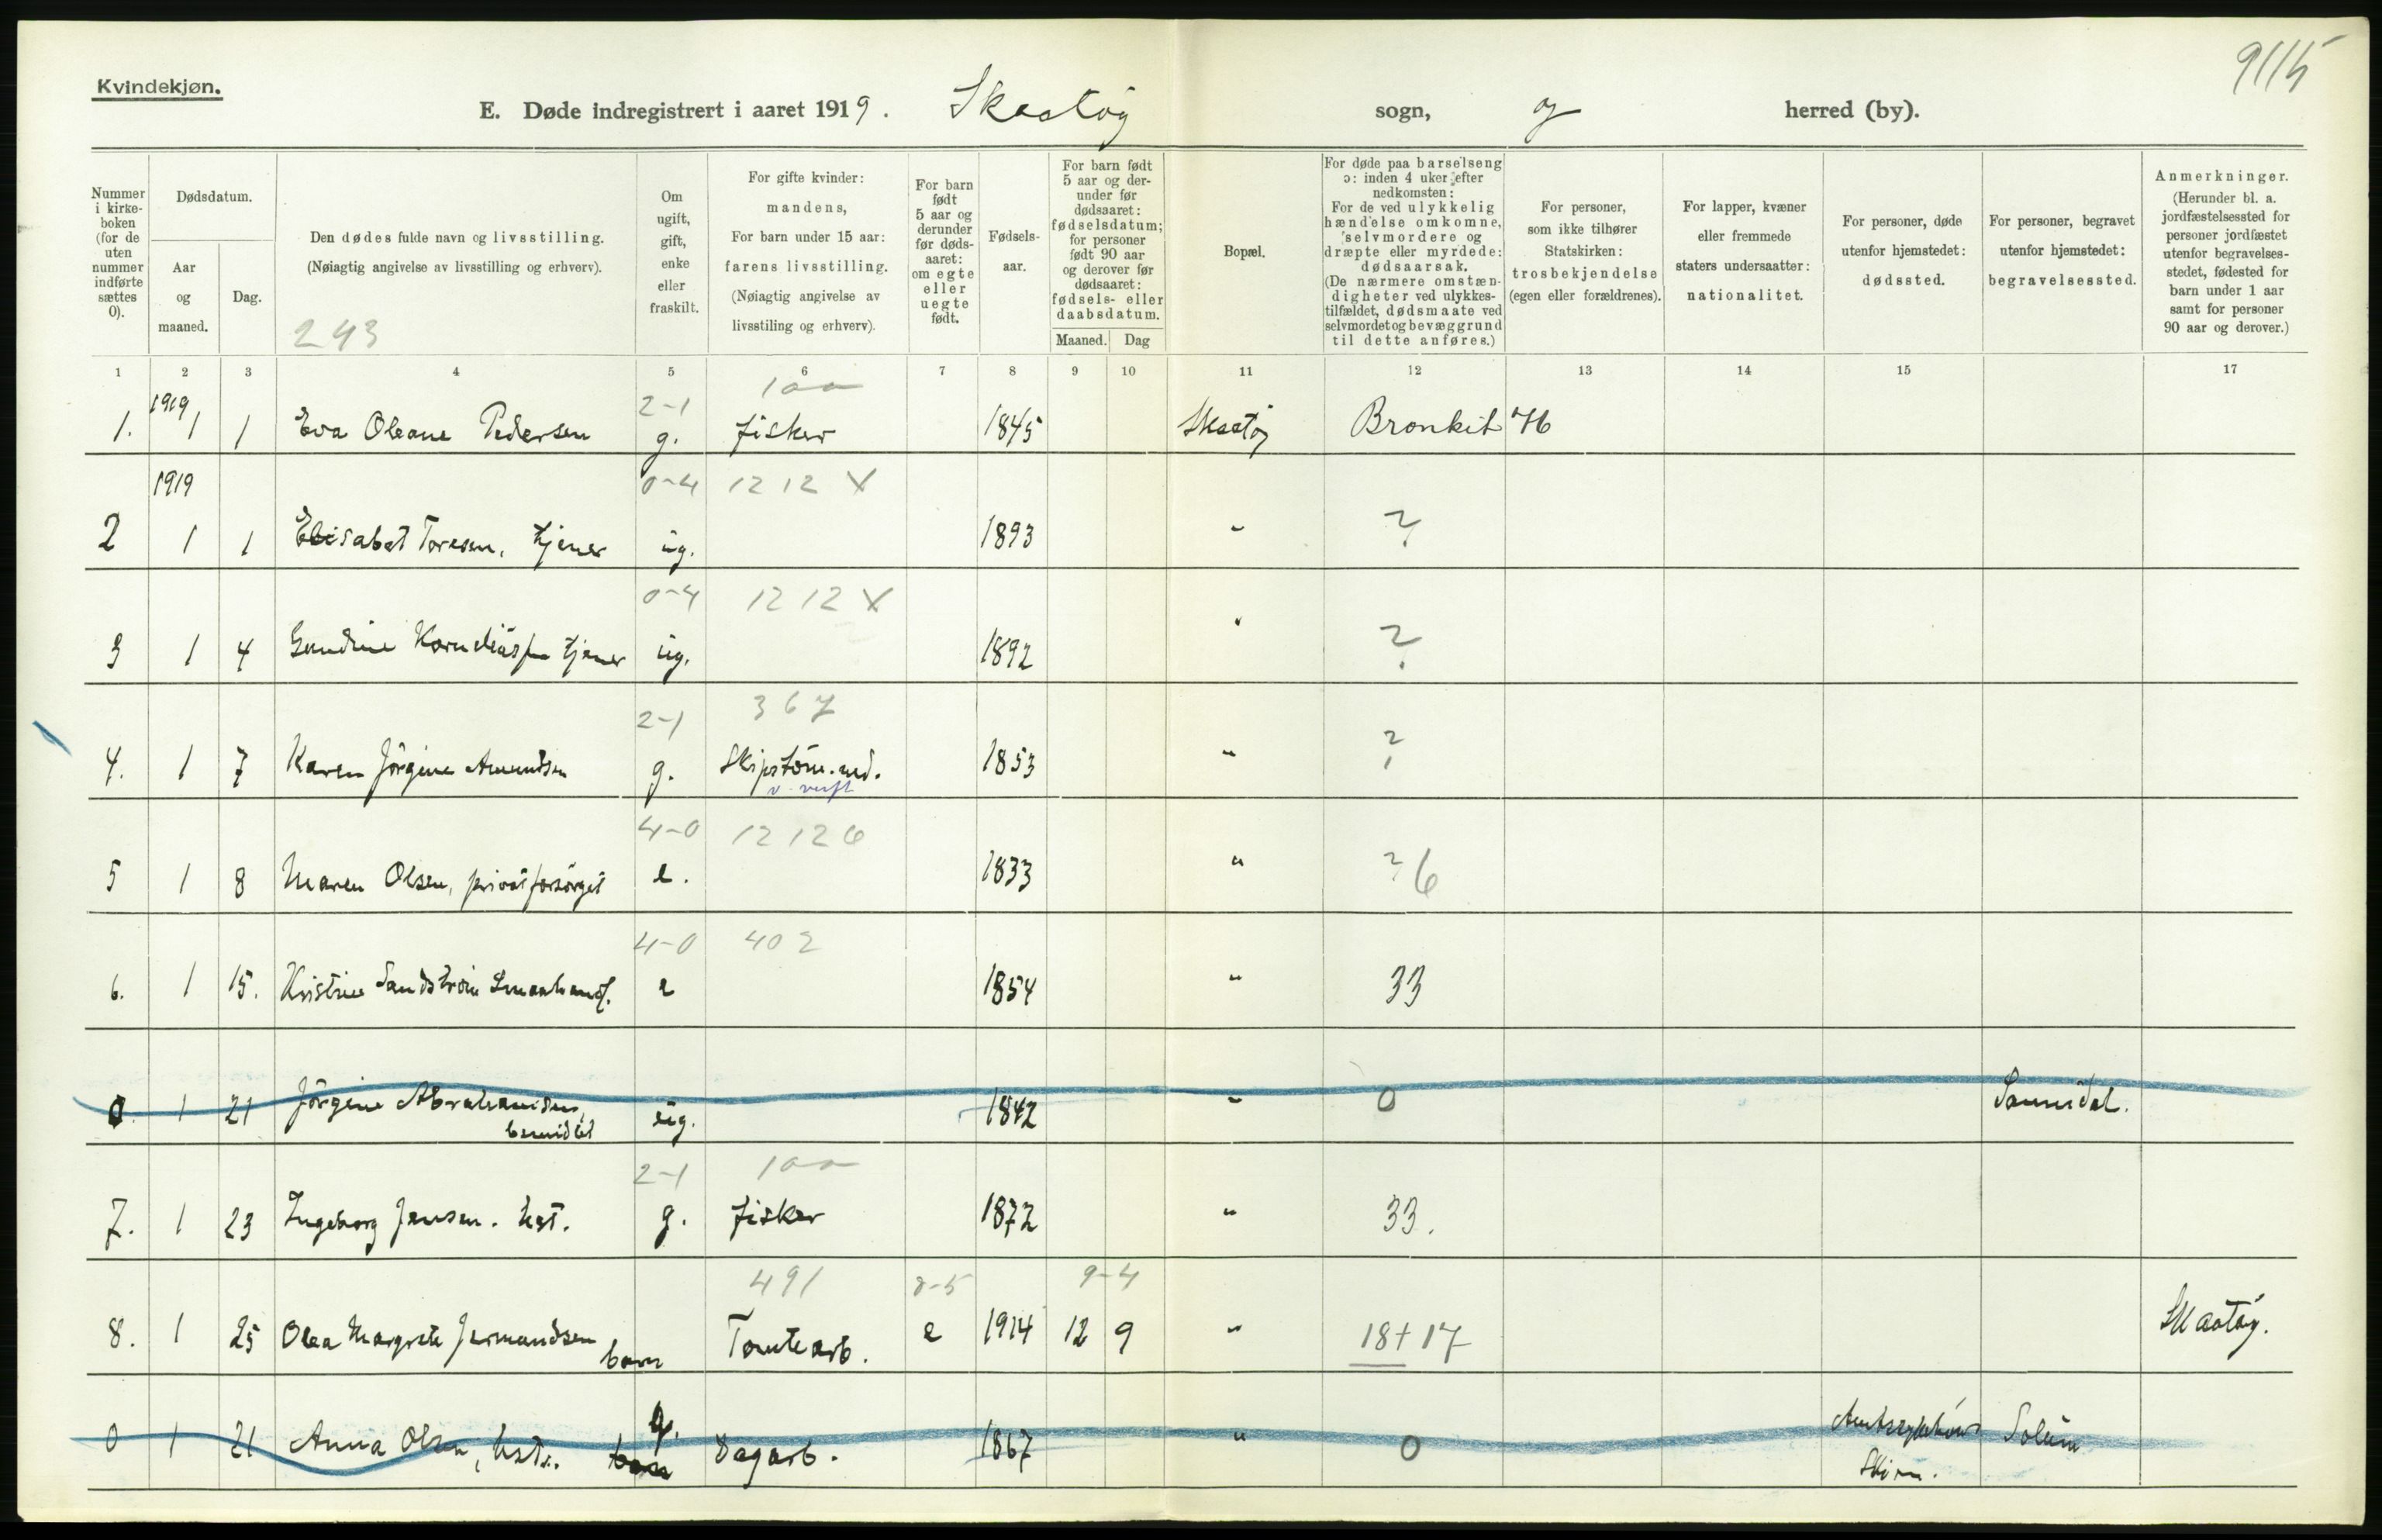 9115
Kvindekjøn.
E. Døde indregistrert i aaret 1919. Skaatøy sogn, og herred (by).
Nummer i kirkeboken (for de uten nummer indførte sættes 0).
Dødsdatum.
Aar og maaned.
Dag.
Den dødes fulde navn og livsstilling.
(Nøiagtig angivelse av livsstilling og erhverv).
243
Om ugift, gift, enke eller fraskilt.
For gifte kvinder: mandens,
For barn under 15 aar: farens livsstilling.
(Nøiagtig angivelse av livsstiling og erhverv).
For barn født 5 aar og derunder før dødsaaret: om egte eller uegte født.
Fødselsaar.
For barn født 5 aar og derunder før dødsaaret: fødselsdatum; for personer født 90 aar og derover før dødsaaret: fødsels- eller daabsdatum.
Maaned. Dag
Bopæl.
For døde paa barselseng ɔ: inden 4 uker efter nedkomsten:
For de ved ulykkelig hændelse omkomne, selvmordere og dræpte eller myrdede: dødsaarsak.
(De nærmere omstændigheter ved ulykkestilfældet, dødsmaate ved selvmordet og bevæggrund til dette anføres.)
For personer, som ikke tilhører Statskirken: trosbekjendelse (egen eller forældrenes).
For lapper, kvæner eller fremmede staters undersaatter: nationalitet.
For personer, døde utenfor hjemstedet: dødssted.
For personer, begravet utenfor hjemstedet: begravelsessted.
Anmerkninger.
(Herunder bl. a. jordfæstelsessted for personer jordfæstet utenfor begravelsesstedet, fødested for barn under 1 aar samt for personer 90 aar og derover.)
1 2 3 4 5 6 7 8 9 10 11 12 13 14 15 17
1919 2-1 100
1. 1 1 Eva Oleane Pedersen g. fisker 1845 Skaatøy Bronkit 46
1919 0-4 12 12 X
2 1 1 Elisabet Toresen, tjener ug. 1893 " ?
0-4 12 12 X
3 1 4 Gundine Korneliusen tjener ug. 1892 " ?
2-1 367
4. 1 7 Karen Jörgine Amundsen g. Skipstöm.md. 1853 " ?
v. verft
4-0 12 12 6
5 1 8 Maren Olsen, privat forsörget e. 1833 " ? 6
4-0 402
6. 1 15. Kristine Sandström Smaahandl. e 1854 " 33
0. 1 21 Jörgine Abrahamsen, ug. 1842 " 0 Sannidal.
bemidlet
2-1 100
7. 1 23 Ingeborg Jensen. hst. g. fisker 1872 " 33.
491 8-5 9-4
8. 1 25 Olea Margrete Jermundsen barn Tomtearb. e 1914 12 9 " 18+17 Skaatöy.
0 1 21 Anna Olsen, hst. g. Dagarb. 1867 " 0 Amtssykehus Solum
Skien.